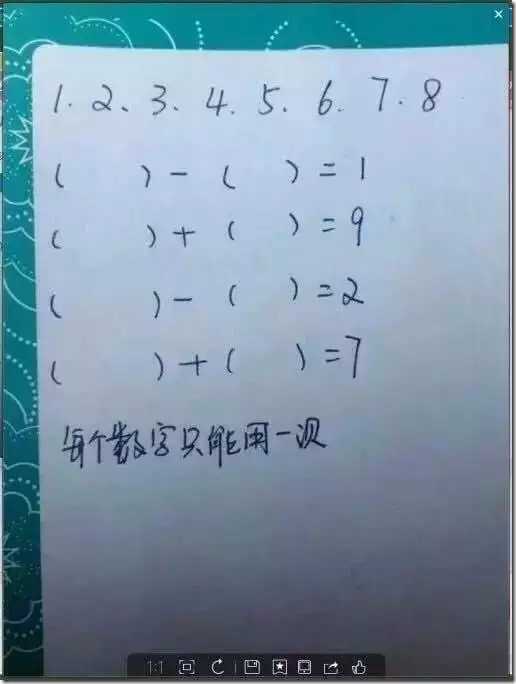 1. 2、3、4、5、6、7、8
(  ) - (  ) = 1
(  ) + (  ) = 9
(  ) - (  ) = 2
(  ) + (  ) = 7
每个数字只能用一次
1:1